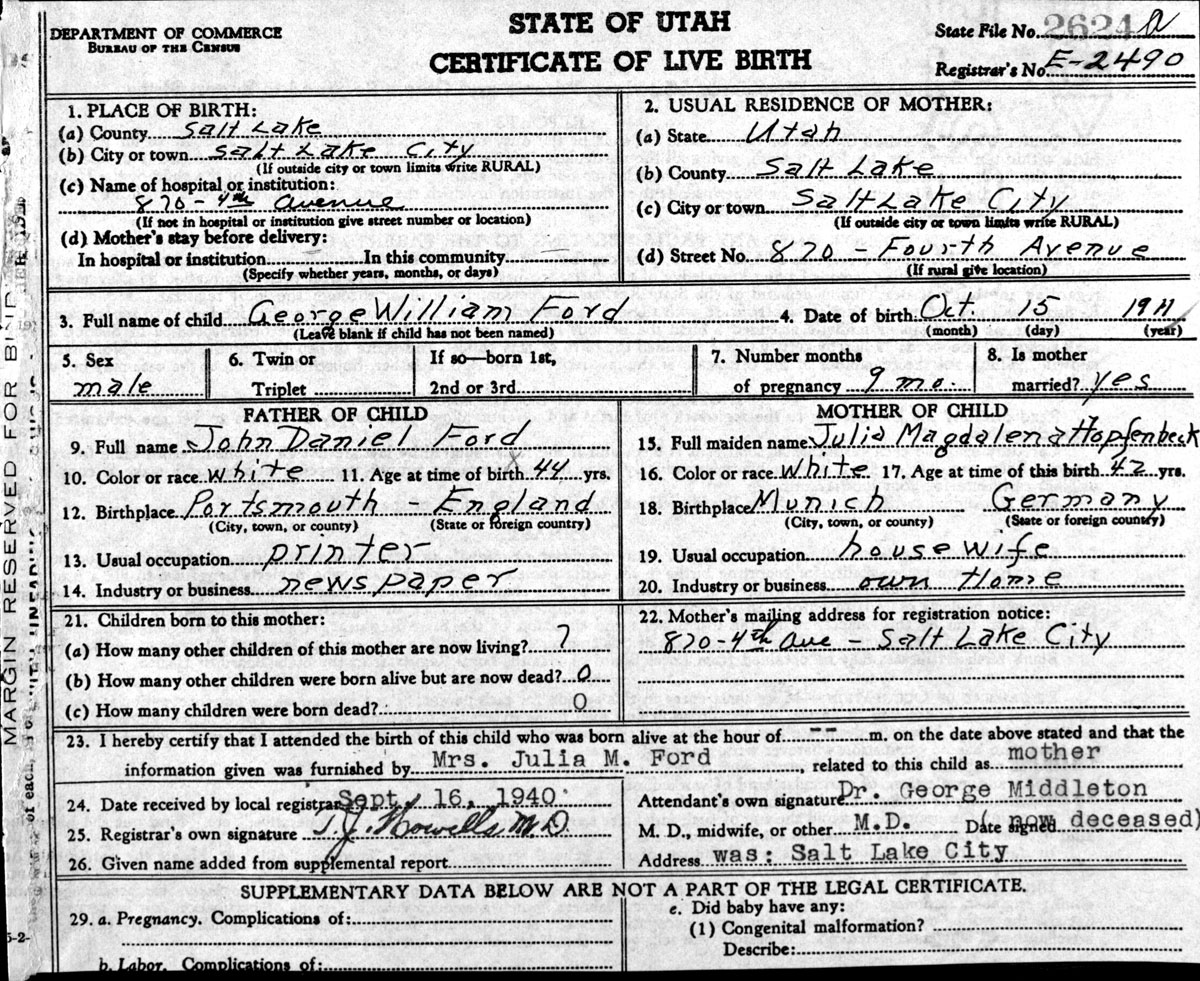 STATE OF UTAH
CERTIFICATE OF LIVE BIRTH
DEPARTMENT OF COMMERCE
BUREAU OF THE CENSUS
State File No. 2624
Registrar's No. E-2490
MARGIN RESERVED FOR
1. PLACE OF BIRTH:
(a) County Salt Lake
(b) City or town Salt Lake City
(If outside city or town limits write RURAL)
(c) Name of hospital or institution:
870-4th Avenue
(If not in hospital or institution give street number or location)
(d) Mother's stay before delivery:
In hospital or institution In this community
(Specify whether years, months, or days)
2. USUAL RESIDENCE OF MOTHER:
(a) State Utah
(b) County Salt Lake
(c) City or town Salt Lake City
(If outside city or town limits write RURAL)
(d) Street No. 870 - Fourth Avenue
(If rural give location)
3. Full name of child George William Ford 4. Date of birth Oct. 15 1911
(Leave blank if child has not been named) (month) (day) (year)
5. Sex 6. Twin or If so—born 1st, 7. Number months 8. Is mother
male Triplet 2nd or 3rd of pregnancy 9 mo. married? yes
FATHER OF CHILD
9. Full name John Daniel Ford
10. Color or race white 11. Age at time of birth 44 yrs.
12. Birthplace Portsmouth - England
(City, town, or county) (State or foreign country)
13. Usual occupation printer
14. Industry or business newspaper
MOTHER OF CHILD
15. Full maiden name Julia Magdalena Hopfenbeck
16. Color or race white 17. Age at time of this birth 42 yrs.
18. Birthplace Munich Germany
(City, town, or county) (State or foreign country)
19. Usual occupation housewife
20. Industry or business own Home
21. Children born to this mother:
(a) How many other children of this mother are now living? 7
(b) How many other children were born alive but are now dead? 0
(c) How many children were born dead? 0
22. Mother's mailing address for registration notice:
870-4th Ave - Salt Lake City
23. I hereby certify that I attended the birth of this child who was born alive at the hour of -- m. on the date above stated and that the
information given was furnished by Mrs. Julia M. Ford, related to this child as mother
24. Date received by local registrar Sept. 16, 1940
25. Registrar's own signature T.J. Howells M.D.
26. Given name added from supplemental report
Attendant's own signature Dr. George Middleton
M. D., midwife, or other M.D. Date signed (now deceased)
Address was: Salt Lake City
SUPPLEMENTARY DATA BELOW ARE NOT A PART OF THE LEGAL CERTIFICATE.
29. a. Pregnancy. Complications of:
b. Labor. Complications of:
e. Did baby have any:
(1) Congenital malformation?
Describe: